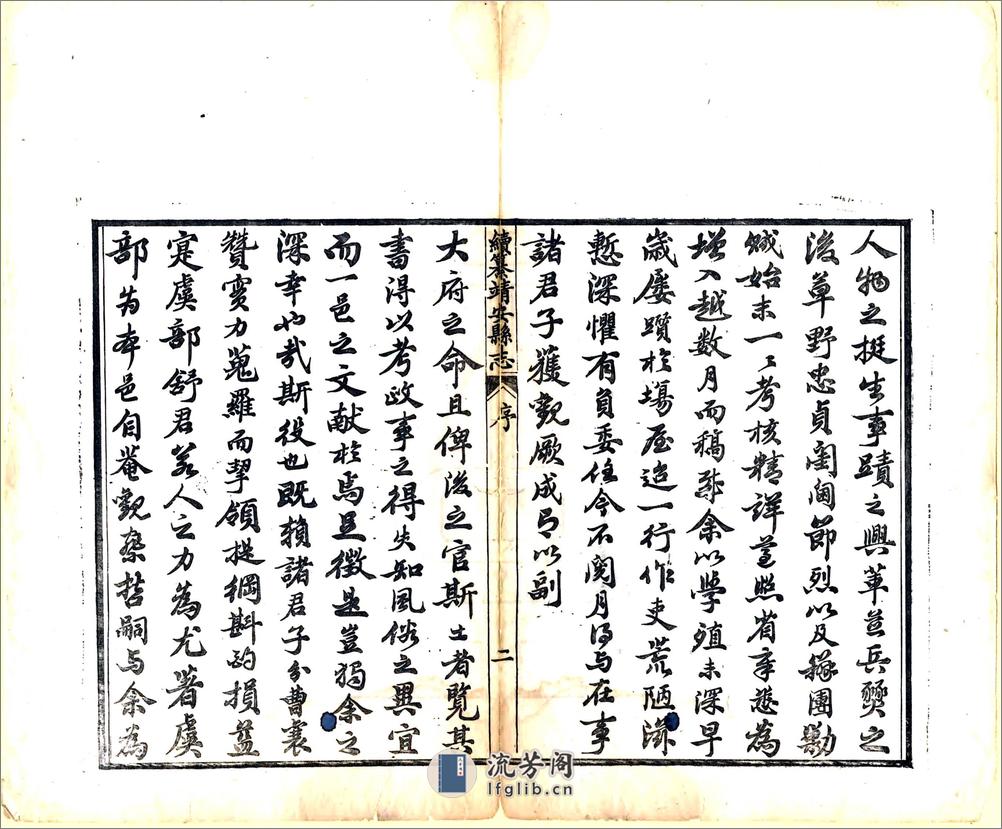 人物之挺生事蹟之興革並兵燹之
後草野忠貞閨閫節烈以及練團勦
賊始末一一考核精詳並照省章悉為
增入越數月而稿成余以學殖未深早
歲屢躓於場屋迨一行作吏荒陋滋
慙深懼有負委任今不閱月得與在事
諸君子獲觀厥成乃以副
續纂靖安縣志
序
二
大府之命且俾後之官斯土者覽其
書得以考政事之得失知風俗之異宜
而一邑之文献於焉是徵是豈獨余之
深幸也哉斯役也既賴諸君子分曹襄
贊實力蒐羅而挈領提綱斟酌損益
寔虞部舒君某人之力為尤著虞
部為本邑自菴觀察哲嗣与余為
流芳阁
lfglib.cn